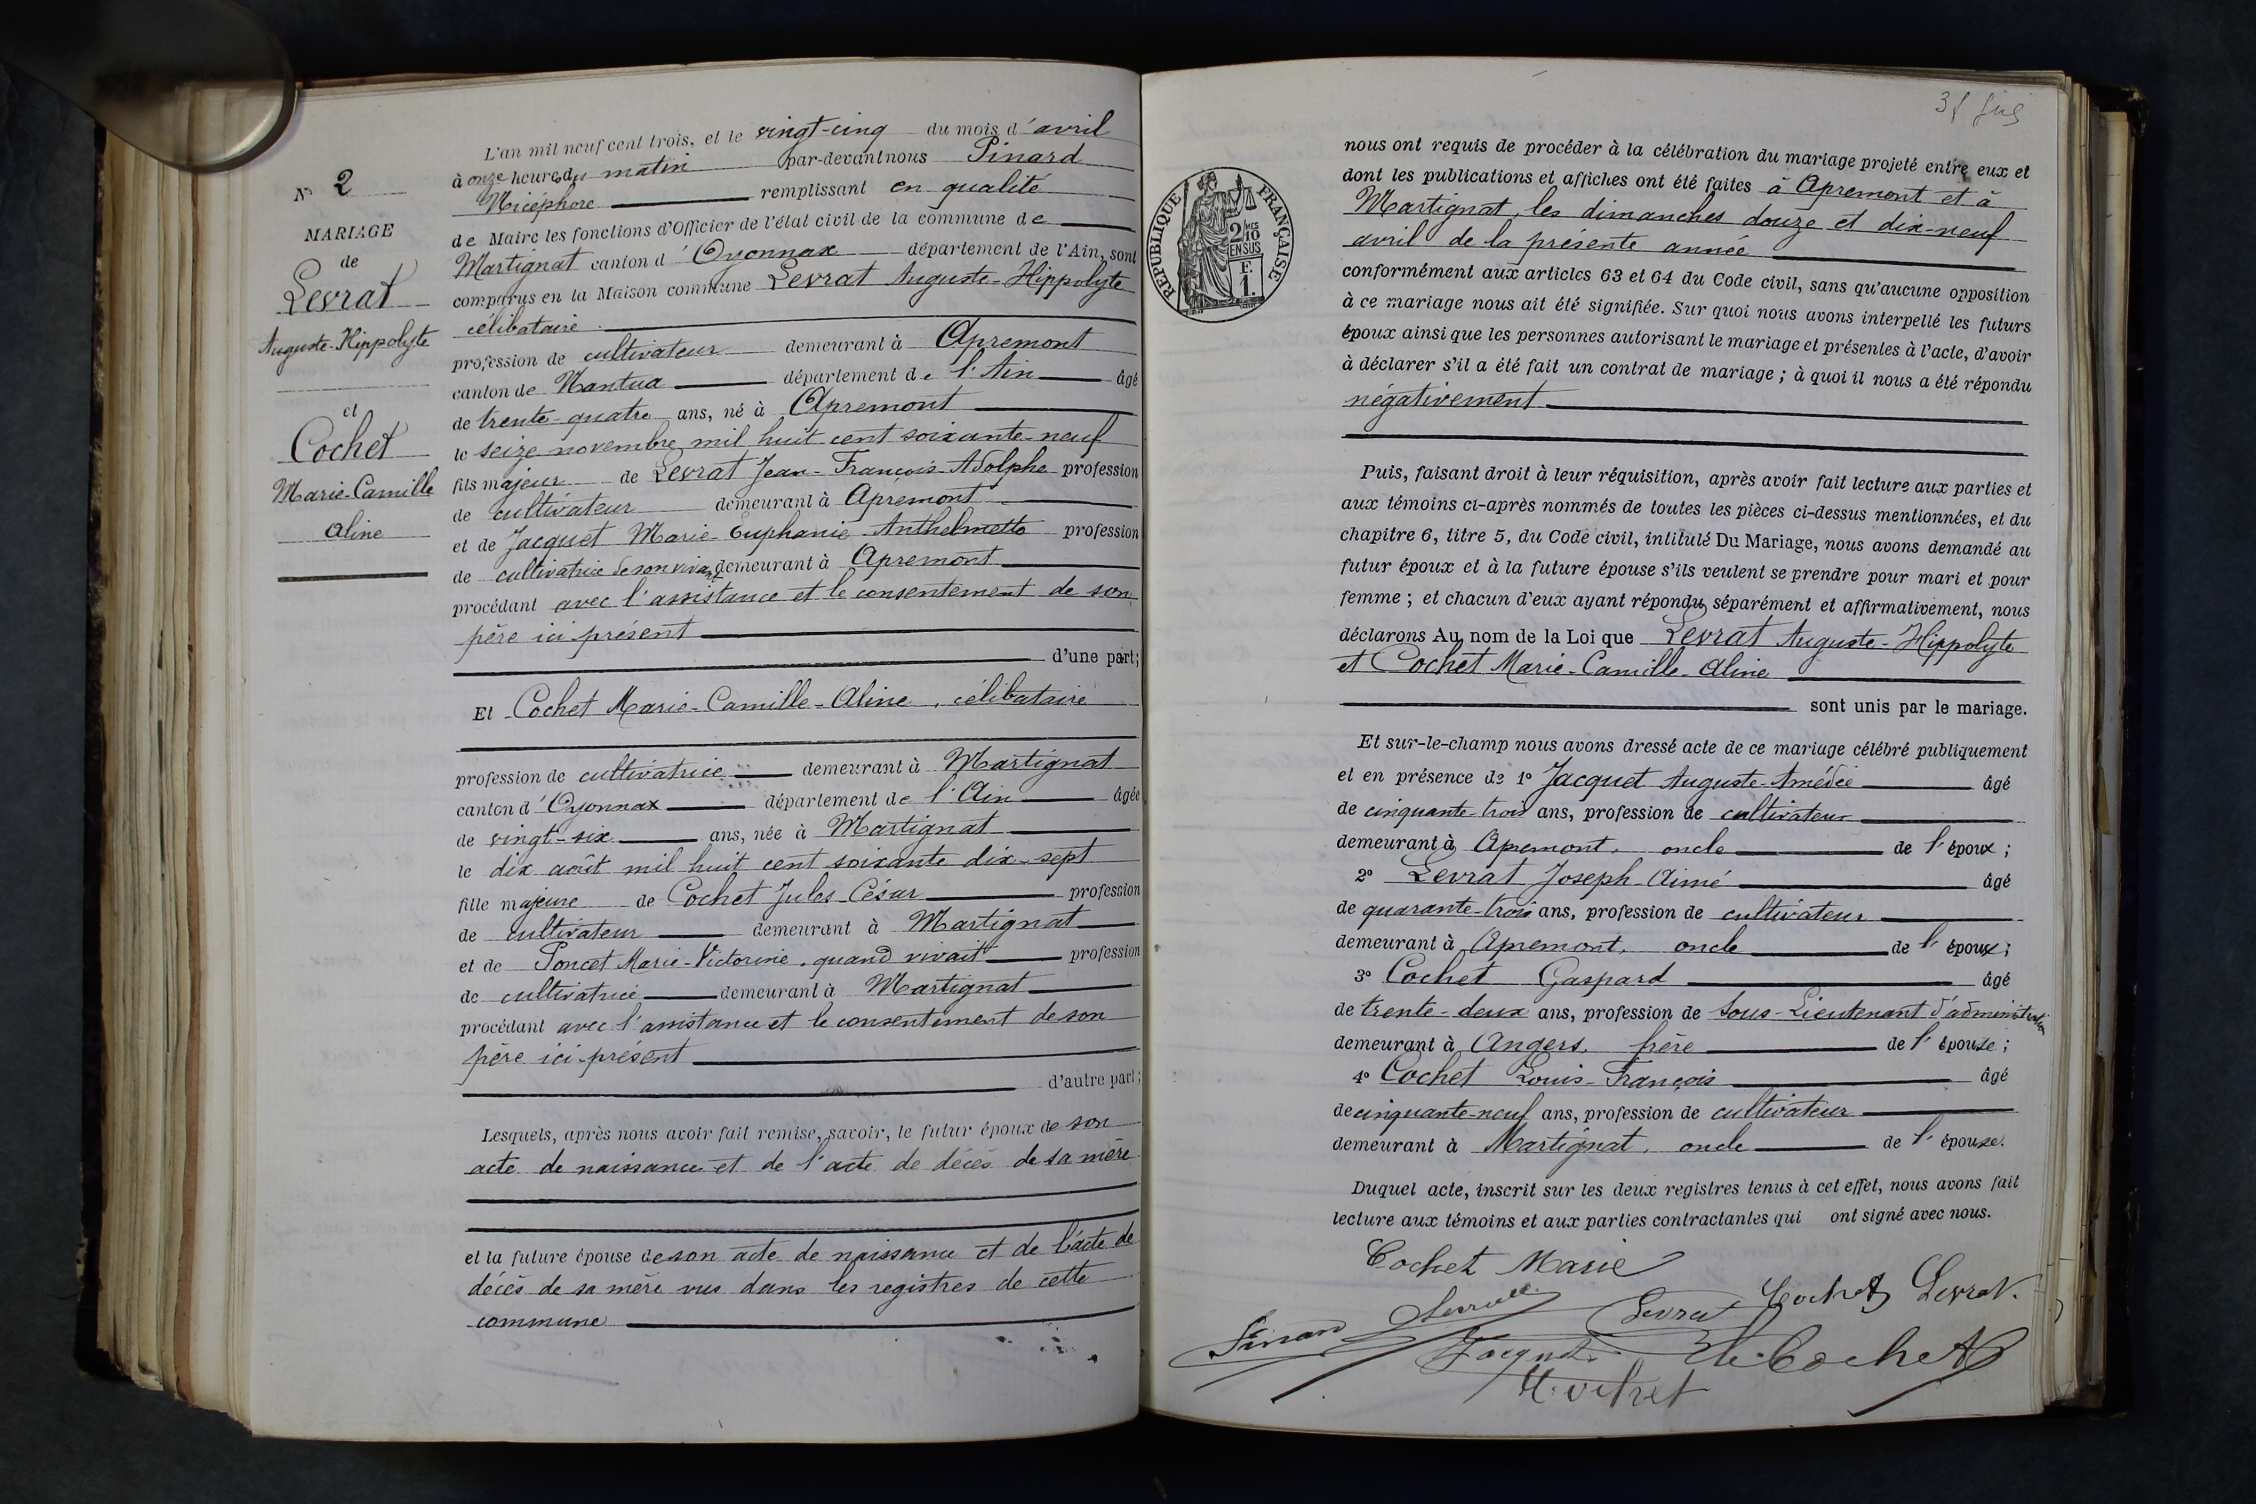 N° 2
MARIAGE
de
Levrat
Auguste-Hippolyte
et
Cochet
Marie-Camille
Aline
L'an mil neuf cent trois, et le vingt-cinq du mois d'avril
à onze heures du matin par-devant nous Pinard
Nicéphore remplissant en qualité
de Maire les fonctions d'Officier de l'état civil de la commune de
Martignat canton d'Oyonnax département de l'Ain, sont
comparus en la Maison commune Levrat Auguste-Hippolyte
célibataire
profession de cultivateur demeurant à Apremont
canton de Nantua département de l'Ain âgé
de trente-quatre ans, né à Apremont
le seize novembre mil huit cent soixante-neuf
fils majeur de Levrat Jean-François-Adolphe profession
de cultivateur demeurant à Apremont
et de Jacquet Marie-Euphanie-Anthelmette profession
de cultivatrice de son vivant demeurant à Apremont
procédant avec l'assistance et le consentement de son
père ici présent
d'une part;
Et Cochet Marie-Camille-Aline, célibataire
profession de cultivatrice demeurant à Martignat
canton d'Oyonnax département de l'Ain âgée
de vingt-six ans, née à Martignat
le dix août mil huit cent soixante dix-sept
fille majeure de Cochet Jules César profession
de cultivateur demeurant à Martignat
et de Poncet Marie-Victorine, quand vivait profession
de cultivatrice demeurant à Martignat
procédant avec l'assistance et le consentement de son
père ici présent
d'autre part;
Lesquels, après nous avoir fait remise, savoir, le futur époux de son
acte de naissance et de l'acte de décès de sa mère
et la future épouse de son acte de naissance et de l'acte de
décès de sa mère vus dans les registres de cette
commune
RÉPUBLIQUE FRANÇAISE
2/10
EN SUS
F.
1.
nous ont requis de procéder à la célébration du mariage projeté entre eux et
dont les publications et affiches ont été faites à Apremont et à
Martignat, les dimanches douze et dix-neuf
avril de la présente année
conformément aux articles 63 et 64 du Code civil, sans qu'aucune opposition
à ce mariage nous ait été signifiée. Sur quoi nous avons interpellé les futurs
époux ainsi que les personnes autorisant le mariage et présentes à l'acte, d'avoir
à déclarer s'il a été fait un contrat de mariage; à quoi il nous a été répondu
négativement
Puis, faisant droit à leur réquisition, après avoir fait lecture aux parties et
aux témoins ci-après nommés de toutes les pièces ci-dessus mentionnées, et du
chapitre 6, titre 5, du Code civil, intitulé Du Mariage, nous avons demandé au
futur époux et à la future épouse s'ils veulent se prendre pour mari et pour
femme; et chacun d'eux ayant répondu séparément et affirmativement, nous
déclarons Au nom de la Loi que Levrat Auguste-Hippolyte
et Cochet Marie-Camille-Aline
sont unis par le mariage.
Et sur-le-champ nous avons dressé acte de ce mariage célébré publiquement
et en présence de 1° Jacquet Auguste-Amédée âgé
de cinquante-trois ans, profession de cultivateur
demeurant à Apremont, oncle de l'époux;
2° Levrat Joseph-Aimé âgé
de quarante-trois ans, profession de cultivateur
demeurant à Apremont, oncle de l'époux;
3° Cochet Gaspard âgé
de trente-deux ans, profession de Sous-Lieutenant d'administration
demeurant à Angers, frère de l'épouse;
4° Cochet Louis-François âgé
de cinquante-neuf ans, profession de cultivateur
demeurant à Martignat, oncle de l'épouse.
Duquel acte, inscrit sur les deux registres tenus à cet effet, nous avons fait
lecture aux témoins et aux parties contractantes qui ont signé avec nous.
Cochet Marie
Cochet Levrat
Pinard Levrat
Jacquet Cochet